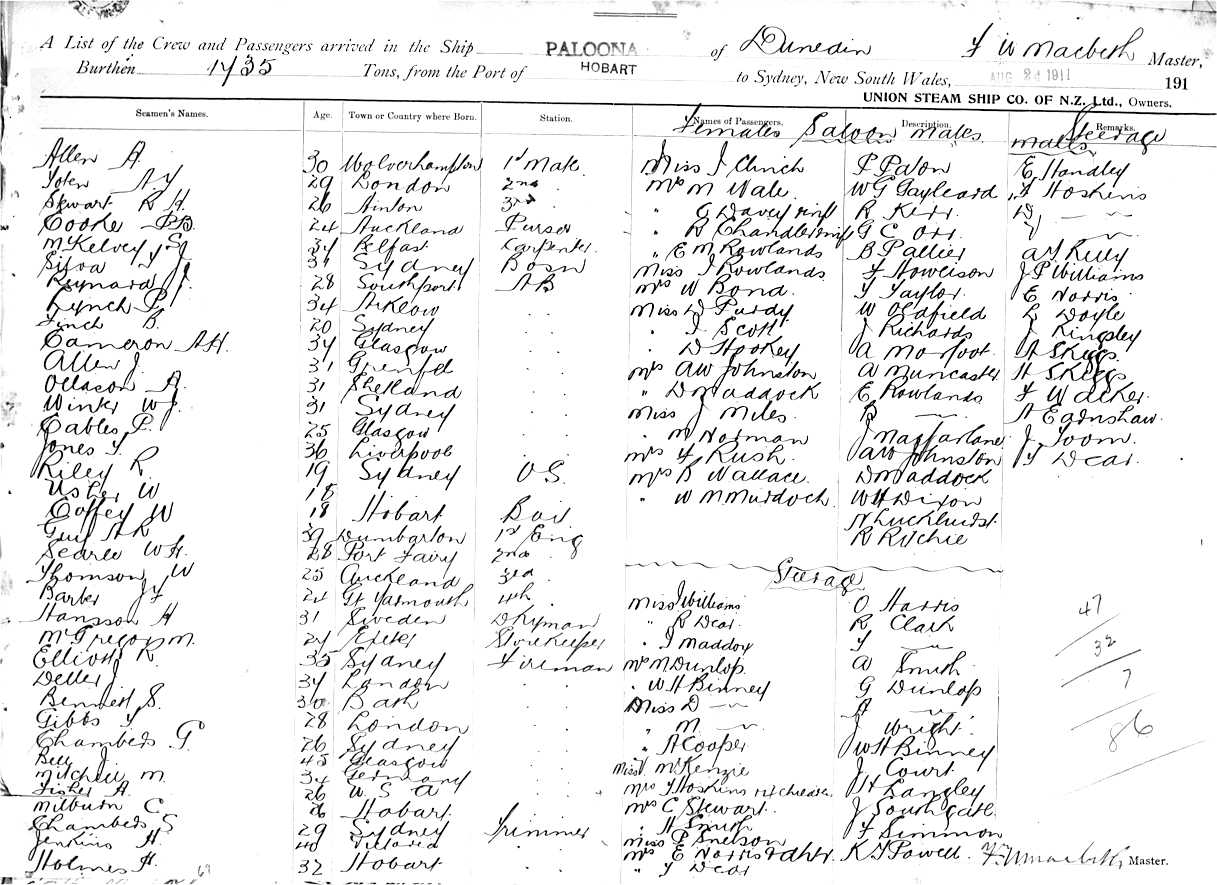 A List of the Crew and Passengers arrived in the Ship PALOONA of Dunedin F W Macbeth Master,
HOBART
Burthen 1435 Tons, from the Port of to Sydney, New South Wales, AUG 24 1911 191
UNION STEAM SHIP CO. OF N.Z. Ltd., Owners.
Seamen's Names. Age. Town or Country where Born. Station. Names of Passengers. Description. Remarks.
Females Saloon Males Steerage
Males
Allen A. 30 Wolverhampton 1st Mate Miss J Clinch P Paton E Handley
29 London 2nd Mrs M Wale W G Gayleard F Hoskins
Stewart R H 26 Ainton 3rd " G Davey R Kerr
Cooke 24 Auckland Purser " R Chandler G C Orr
McKelvey S 34 Belfast Carpenter " E M Rowlands B Pallier Kelly
Silva J 31 Sydney Bosn Miss J Rowlands F Howlison J P Williams
Kynard J. 28 Southport AB Mrs W Bond J Taylor E Norris
Lynch P. 34 Arklow " Miss D Purdy W Oldfield L Doyle
Lynch B. 20 Sydney " " J Scott J Richards J Kingsley
Cameron A H. 34 Glasgow " " D Hookey A Morfoot A Skeggs
Allen J. 31 Grenfel " Mrs AW Johnston A Muncaster H Skeggs
Ollason A. 31 Shetland " " D Maddock E Rowlands F Walker
Winter W J. 31 Sydney " Miss J Miles B — A Earnshaw
Cables P. 25 Glasgow " " M Norman J Macfarlane J Toom
Jones T. 36 Liverpool " Mrs F Rush AW Johnston T Dear
Riley R. 19 Sydney O.S. Mrs R Wallace D Maddock
Usher W 18 " W M Murdoch W H Dixon
Coffey W 18 Hobart Boy N Luckhurst
Guy A R 39 Dumbarton 1st Eng R Ritchie
Searle W H. 28 Port Fairy 2nd
Thomson W 25 Auckland 3rd Steerage
Barber J F 24 Gt Yarmouth 4th Miss J Williams O Harris 47
Hansson H 31 Sweden Dkyman " R Dear R Clark
McGregor M. 24 Exeter Storekeeper " J Maddox T — 32
Elliott R. 35 Sydney Fireman Mrs M Dunlop A Smith
Deller J 34 London " " W H Binney G Dunlop 7
Bennett S. 30 Bath " Miss D — A —
Gibbs T 28 London " " M — J Wright
Chambers G 26 Sydney " " A Cooper W H Binney 86
Bell J. 45 Glasgow " Miss McKenzie J Court
Mitchell M. 34 Germany " Mrs F Hoskins H Langley
Fisher A. 26 U.S.A " Mrs C Stewart J Southgate
Milburn C. 26 Hobart " " H Smith F Simmon
Chambers S 29 Sydney Trimmer Miss P Snelson
Jenkins H. 40 Victoria " Mrs E Norris & dhtr K J Powell. F W Macbeth Master.
Holmes H. 32 Hobart " " T Dear